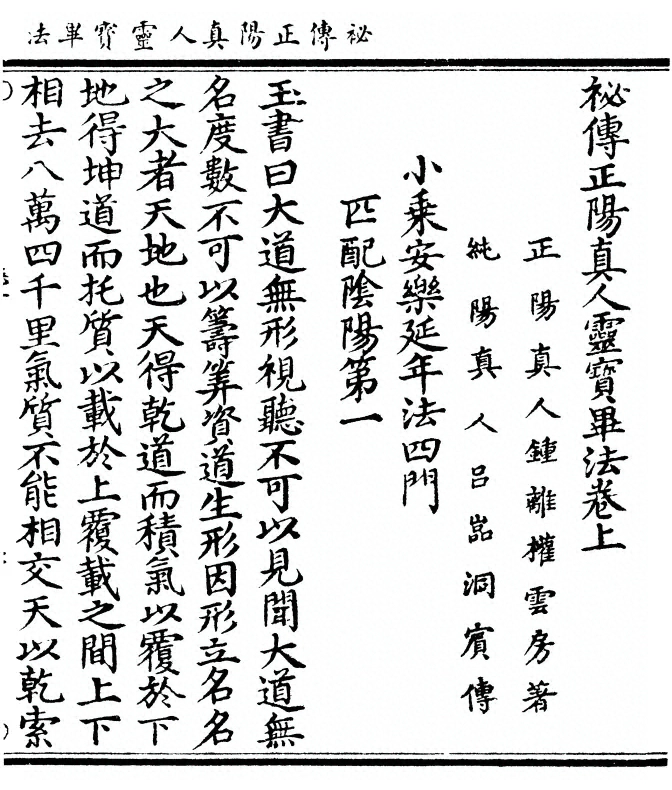 祕傳正陽真人靈寶畢法
祕傳正陽真人靈寶畢法卷上
正陽真人鍾離權雲房著
純陽真人呂嵓洞賓傳
小乘安樂延年法四門
匹配陰陽第一
玉書曰大道無形視聽不可以見聞大道無
名度數不可以籌筭資道生形因形立名名
之大者天地也天得乾道而積氣以覆於下
地得坤道而托質以載於上覆載之間上下
相去八萬四千里氣質不能相交天以乾索